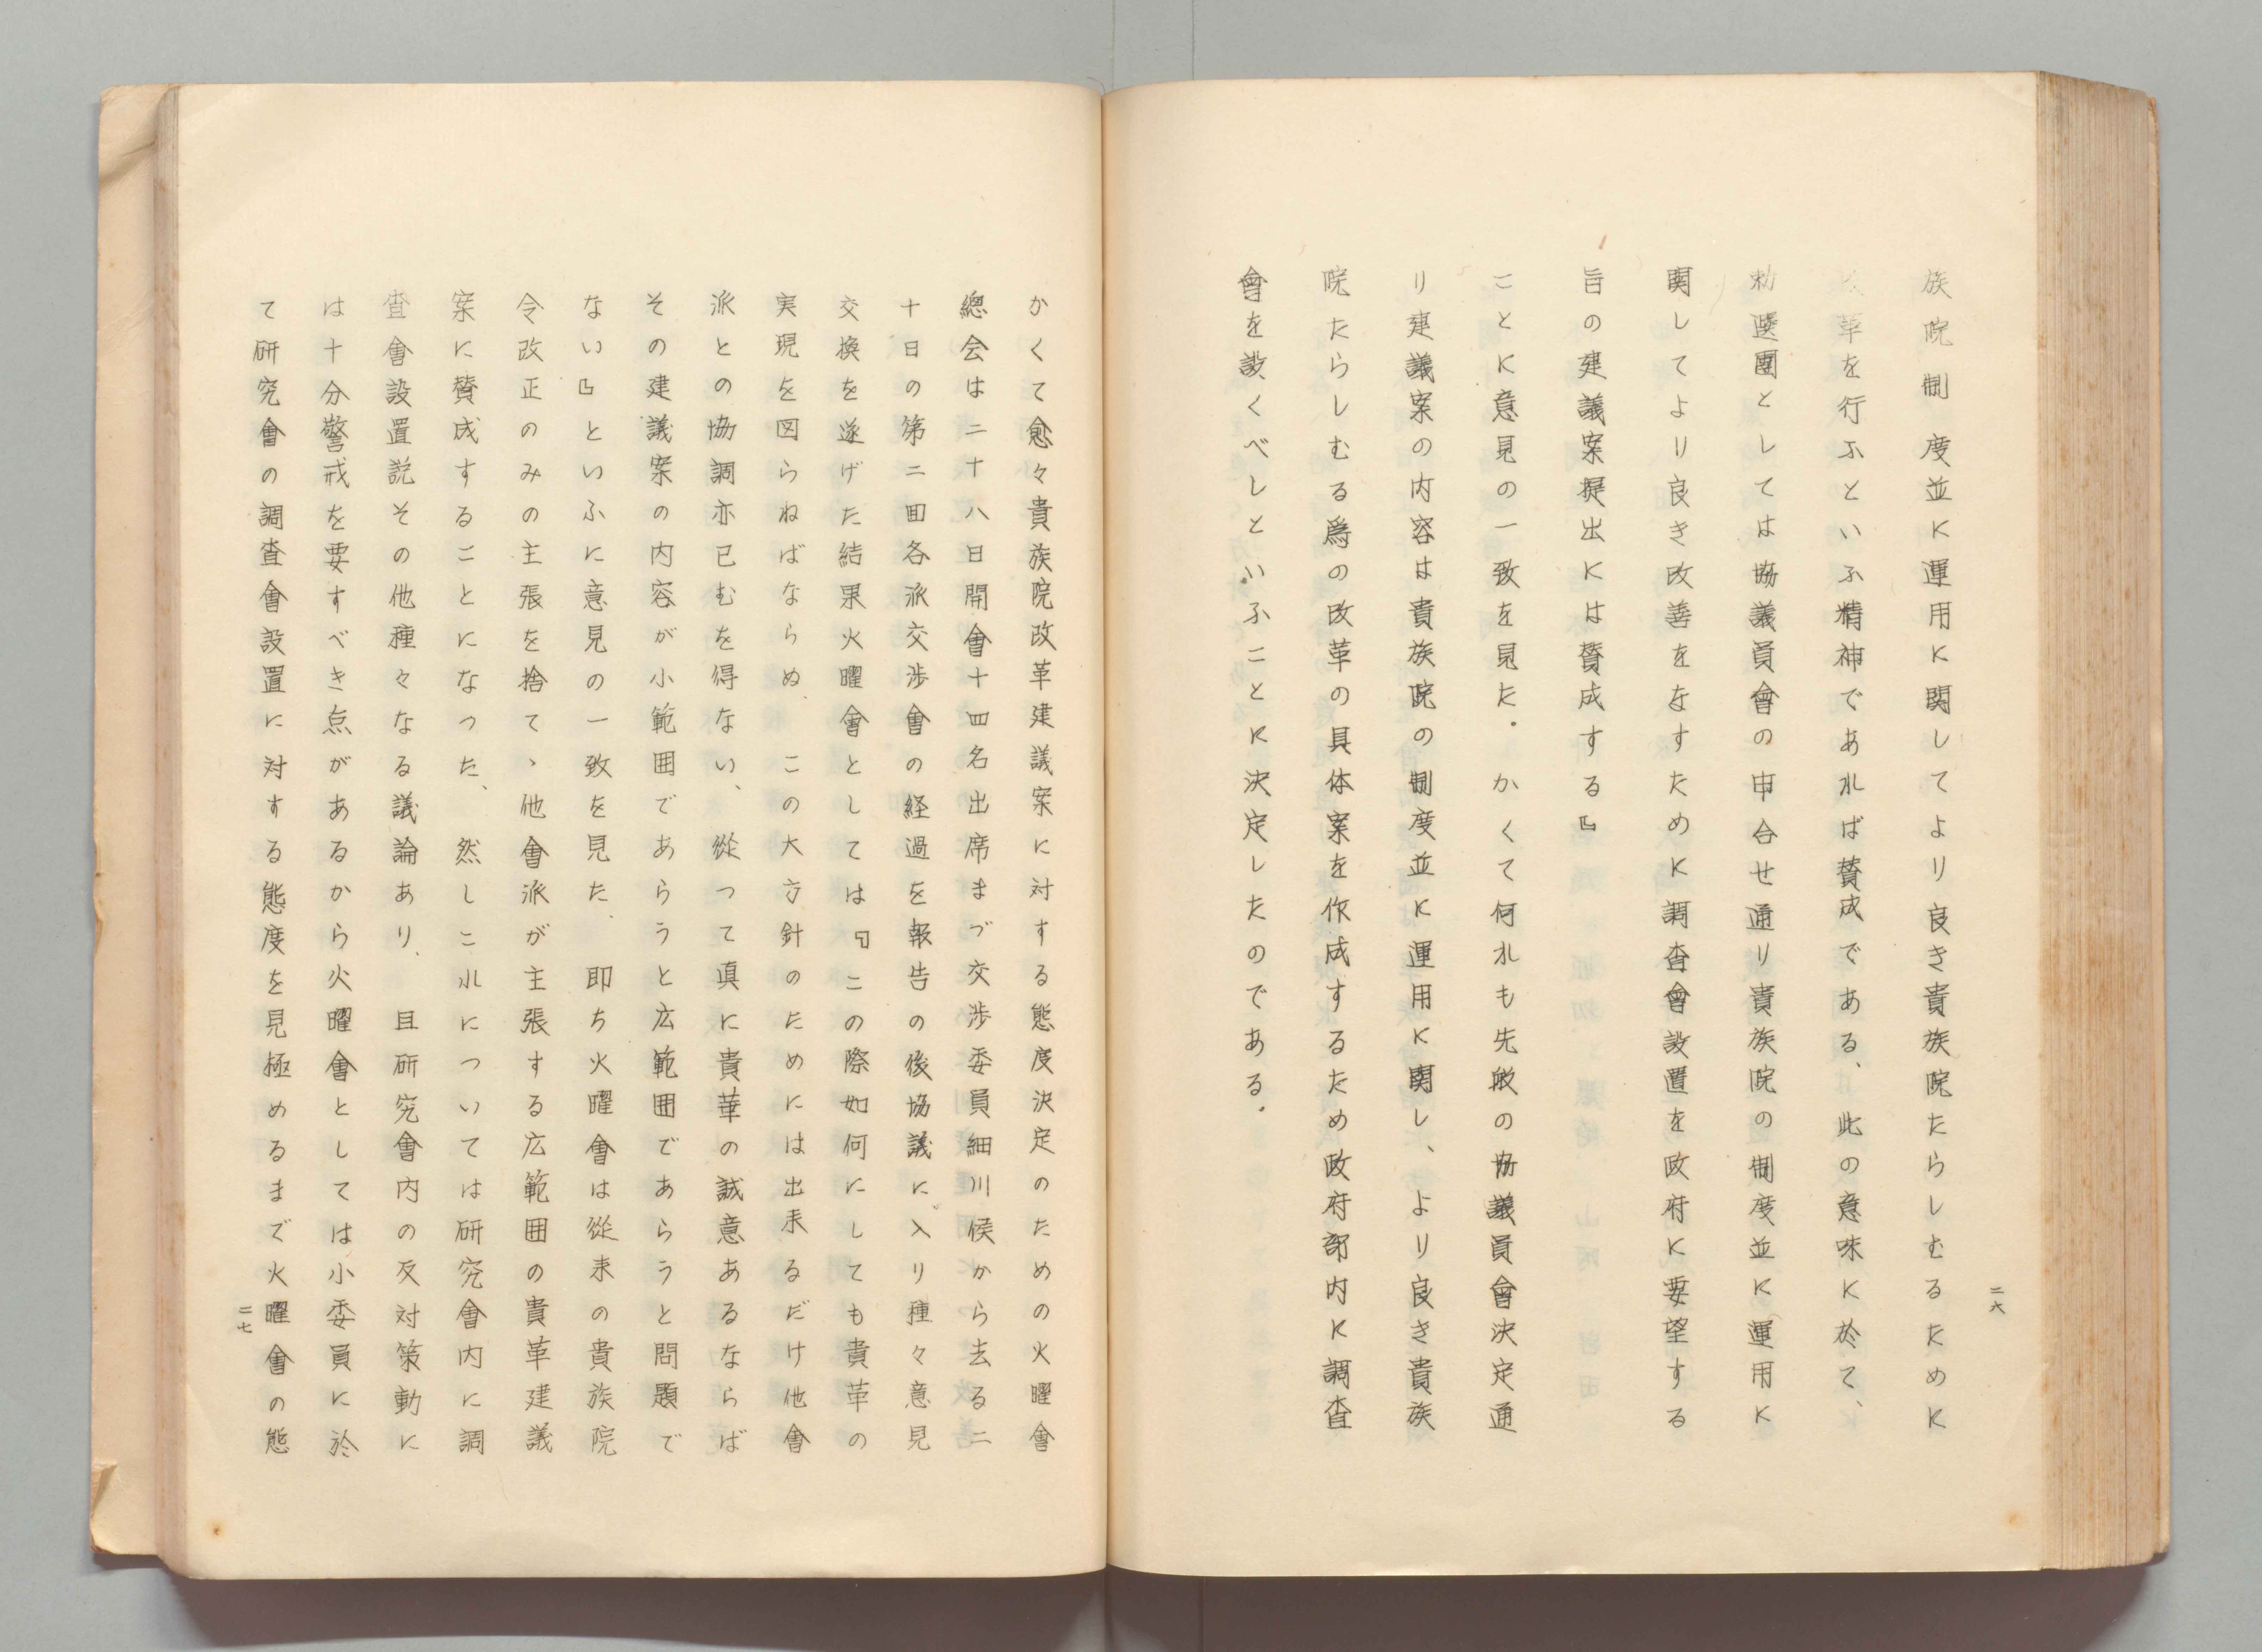 二六
族院制度並に運用に関してより良き貴族院たらしむるために
革を行ふといふ精神であれば賛成である、此の意味に於て、
勅選團としては協議員會の申合せ通り貴族院の制度並に運用に
関してより良き改善をなすために調査會設置を政府に要望する
旨の建議案提出には賛成する』
ことに意見の一致を見た。かくて何れも先般の協議員會決定通
り建議案の内容は貴族院の制度並に運用に関し、より良き貴族
院たらしむる爲の改革の具体案を作成するため政府部内に調査
會を設くべしといふことに決定したのである。
かくて愈々貴族院改革建議案に対する態度決定のための火曜會
總会は二十八日開會十四名出席まづ交渉委員細川侯から去る二
十日の第二回各派交渉會の経過を報告の後協議に入り種々意見
交換を遂げた結果火曜會としては『この際如何にしても貴革の
実現を図らねばならぬ、この大方針のためには出来るだけ他會
派との協調亦已むを得ない、從つて真に貴革の誠意あるならば
その建議案の内容が小範囲であらうと広範囲であらうと問題で
ない』といふに意見の一致を見た、即ち火曜會は從来の貴族院
令改正のみの主張を捨て、他會派が主張する広範囲の貴革建議
案に賛成することになつた、然しこれについては研究會内に調
査會設置説その他種々なる議論あり、且研究會内の反対策動に
は十分警戒を要すべき点があるから火曜會としては小委員に於
て研究會の調査會設置に対する態度を見極めるまで火曜會の態
二七